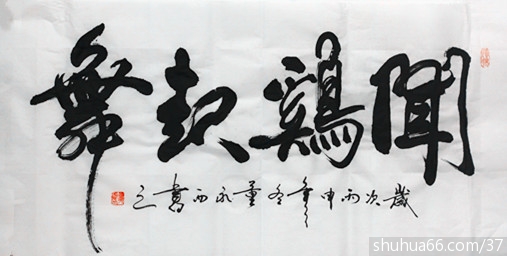 聞鷄起舞
歲次丙申年冬董永西書之
shuhua66.com/37